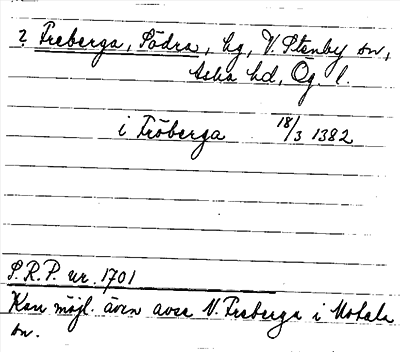 ? Freberga, Södra, hg, V. Stenby sn,
Aska hd, Ög. l.
i Fröberga 18/3 1382
S.R.P. nr. 1701
Kan möjl. även avse N. Freberga i Motala
sn.